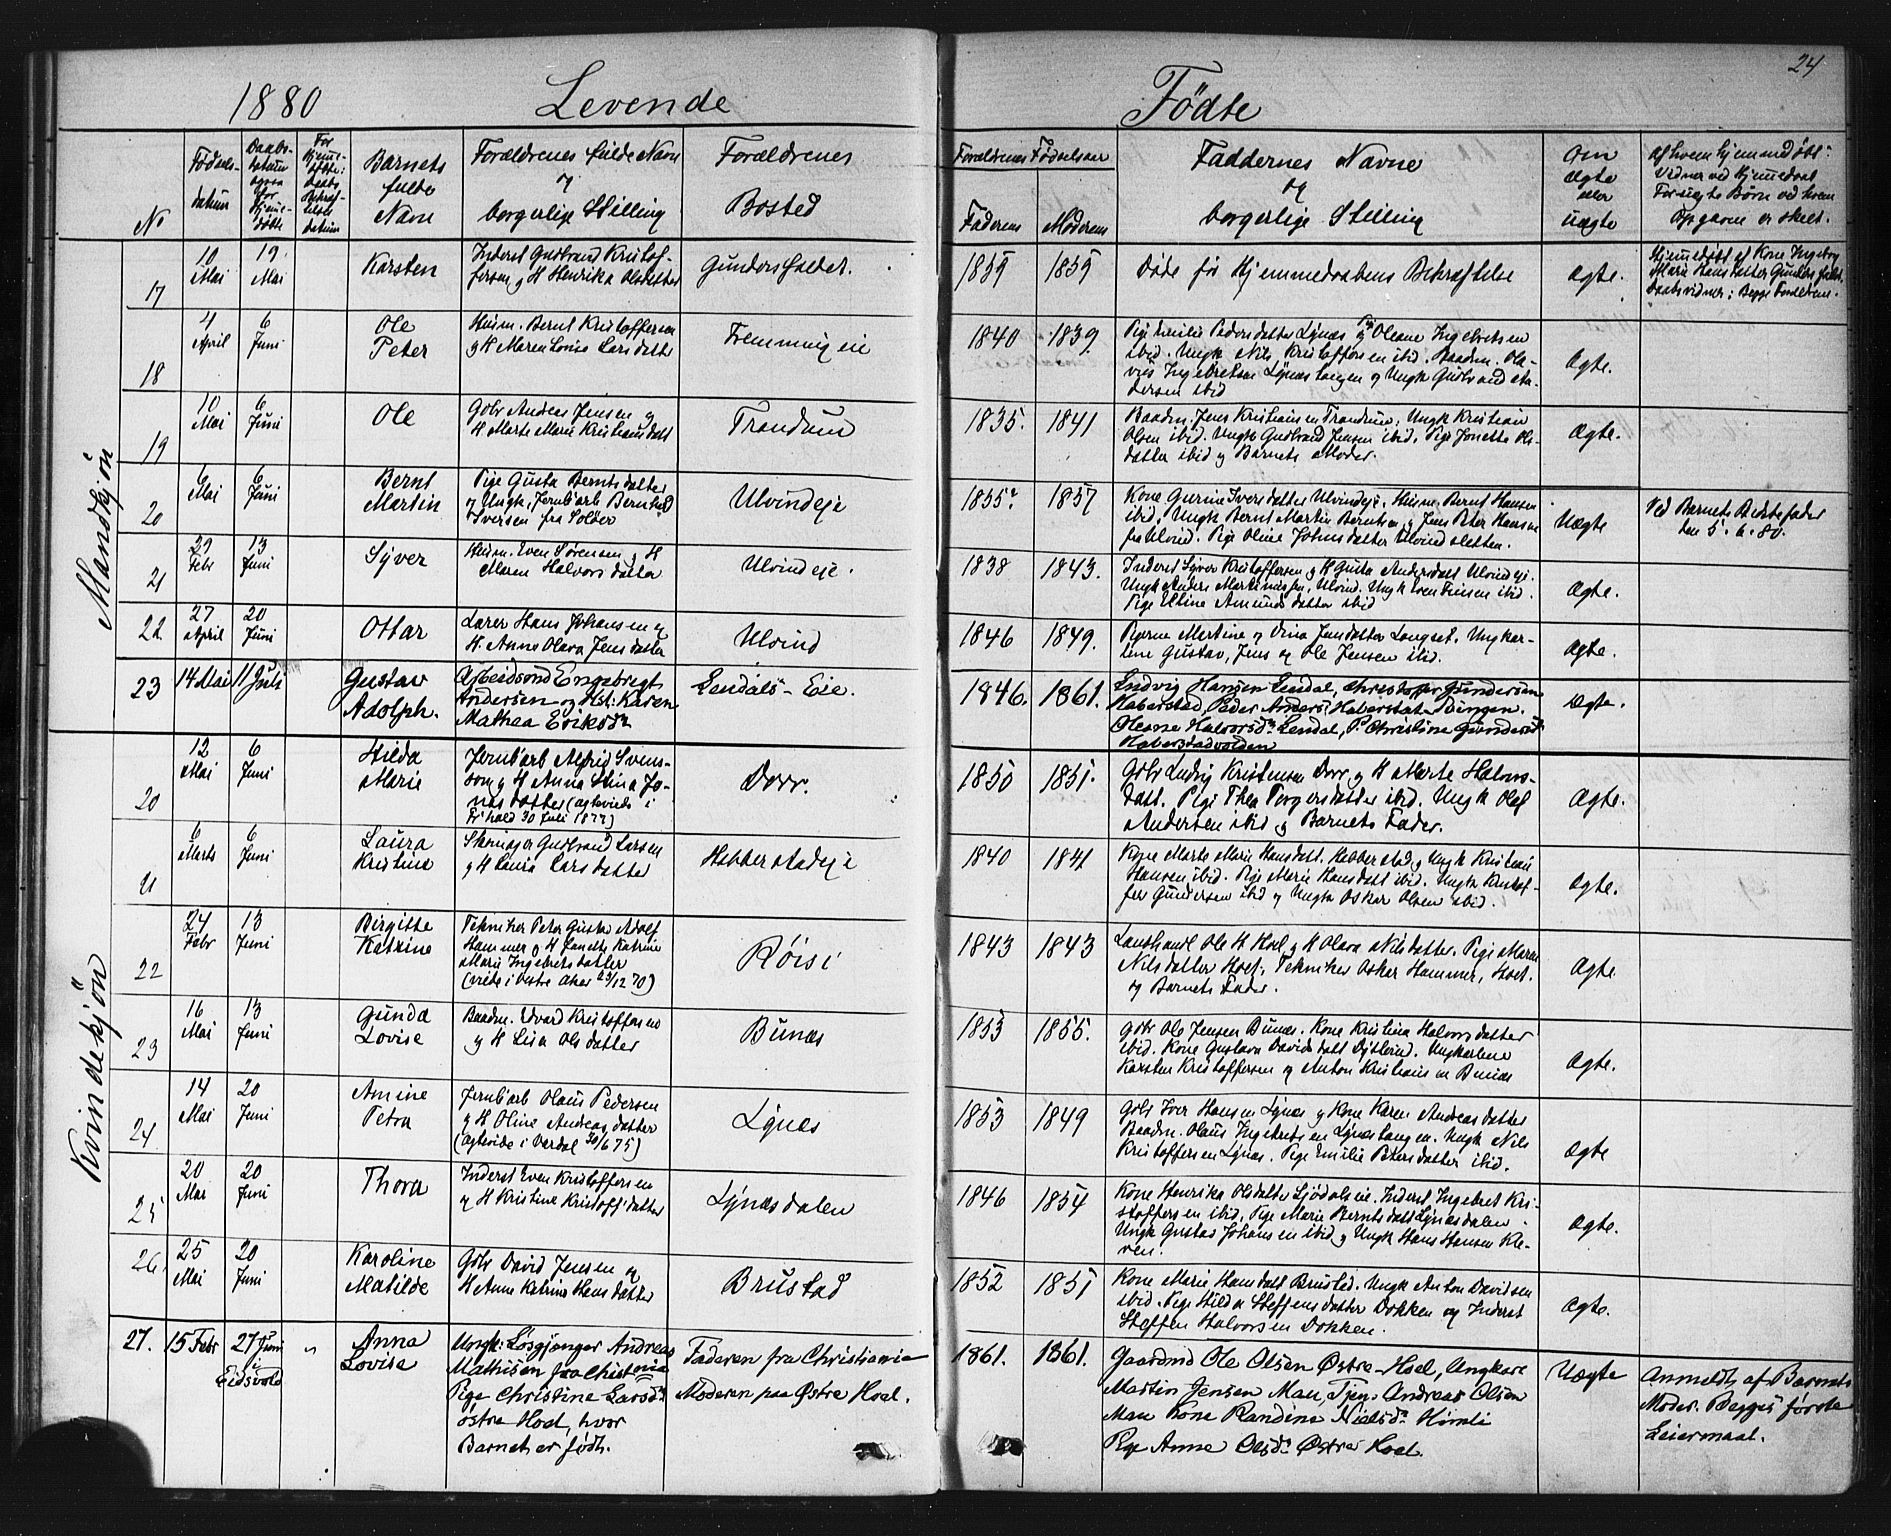 24
1880 Levende Fødte
No
Fødsels-
datum
Daabs-
datum
ogsaa
for
Hjemme-
døbte
For
Hjemme-
døbte:
Daabs
Bekræf-
telse
datum
Barnets
fulde
Navn
Forældrenes fulde Navn
og
borgerlige Stilling
Forældrenes
Bosted
Forældrenes Fødselsaar
Faderens Moderens
Faddernes Navne
og
borgerlige Stilling
Om
ægte
eller
uægte
Af hvem hjemmedøbt:
Vidner ved Hjemmedaab
For uægte Børn ved hvem
Opgaven er skeet.
Mandkjøn
17
10
Mai
19
Mai
Karsten
Inderst Gudbrand Kristof-
fersen og H Henrika Olsdatter
Gundersfaldet.
1839 1839
Døde før Hjemmedaabens Bekræftelse
ægte.
Hjemmedøbt af Kone Ingeborg
Marie Hansdatter Gundersfald.
Daabsvidner: Begge Forældrene.
18
4
April
6
Juni
Ole
Peter
Husm. Bernt Kristoffersen
og H Maren Lovise Larsdatter
Fremming eie
1840 1839
Pige Emilie Pedersdatter Lynæs og Pige Oleane Ingebretsen
ibid. Ungk Nils Kristoffersen ibid. Baadm. Ola-
vus Ingebretsen Lynæstangen og Ungk Gudbrand An-
dersen ibid
ægte.
19
10
Mai
6
Juni
Ole
Gbr Andreas Jensen og
H Marte Marie Kristiansdatt
Trandum
1835. 1841
Baadm. Jens Kristiansen Trandum, Ungk Kristian
Olsen ibid. Ungk Gudbrand Jensen ibid, Pige Jonette Ols-
datter ibid og Barnets Moder.
ægte.
20
6
Mai
6
Juni
Bernt
Martin
Pige Gusta Berntsdatter
og Ungk. Jernb'arb Bernhard
Iversen fra Solør
Ulvindeje
1855? 1857
Kone Gurine Iversdatter Ulvindeje. Husm. Bernt Hansen
ibid. Ungk Bernt Martin Berntsen og Jens Peter Hansen
fra Ulvind. Pige Oline Johnsdatter Ulvindsletten.
Uægte
Ved Barnets Bedstefader
den 5. 6. 80.
21
29
Febr
13
Juni
Syver
Husm. Even Sørensen og H
Maren Halvorsdatter
Ulvindeje.
1838 1843.
Inderst Syver Kristoffersen og H Gusta Andersdatt Ulvindeje.
Ungk Anders Martinussen, Ulvind. Ungk Even Tinisen ibid.
Pige Eline Amundsdatter ibid
ægte.
22
27
April
20
Juni
Ottar
Lærer Hans Johansen og
H. Anne Olava Jensdatter
Ulvind
1846 1849.
Pigerne Martine og Dina Jensdatter Langset. Ungkar-
lene Gustav, Jens og Ole Jensen ibid.
ægte.
23
14 Mai
11 Juli
Gustav
Adolph.
Arbeidsmd Engebregt
Andersen og Hst: Karen
Mathea Eriksdr
Lendals-Eie.
1846. 1861.
Ludvig Hansen Lendal, Christoffer Gundersen
Haberstad, Peder Anders: Haberstad Svingen.
Oleane Halvorsdr Lendal, P. Christine Gundersd
Haberstadvolden
Ægte.
Kvindekjøn
20
12
Mai
6
Juni
Hilda
Marie
Jernb'arb Alfrid Svens-
son og H Anna Stina Jo-
nasdatter (ægteviede i
Fr'hald 30 Juli 1877)
Dorr.
1850 1851.
Gbr Ludvig Kristensen Dorr og H Marte Halvors-
datt. Pige Thea Torgersdatter ibid. Ungk Olaf
Andersen ibid og Barnets Fader.
Ægte.
21
6
Marts
6
Juni
Laura
Kristine
Skomager Gudbrand Larsen
og H Laura Larsdatter
Habberstadeje
1840 1841
Kone Marte Marie Hansdatt. Hebberstad, og Ungk Kristian
Hansen ibid. Pige Marie Hansdatt ibid. Ungk Kristof-
fer Gundersen ibid og Ungk Oskar Olsen ibid.
ægte.
22
24
Febr
13
Juni
Birgitte
Katrine
Tekniker Peter Gustav Adolf
Hammer og H Janette Katrine
Marie Ingebretsdatter
(viede i Vestre Aker 23/12 70)
Røisi
1843 1843
Landhandl Ole H Hoel og H Olava Nilsdatter. Pige Maren
Nilsdatter Hoel. Tekniker Oskar Hammer, Hoel.
og Barnets Fader.
ægte
23
16
Mai
13
Juni
Gunda
Lovise
Baadm. Edvard Kristoffersen
og H Lisa Olsdatter
Bunæs
1853 1855.
Gbr Ole Jensen Bunæs. Kone Kristina Halvorsdatter
ibid. Kone Gustava Davidsdatt Dytlund. Ungkarlene
Karsten Kristoffersen og Anton Kristiansen Bunæs
ægte.
24
14
Mai
20
Juni
Amine
Petra
Jernb'arb Olaus Pedersen
og H Oline Andreasdatter
(ægtevide i Vardal 30/6 75)
Lynæs
1853 1849
Gbr Iver Hansen Lynæs og Kone Karen Andreasdatter
Baadm. Olaus Ingebretsen Lynæstangen. Ungk Nils
Kristoffersen Lynæs. Pige Emilie Petersdatter ibid.
ægte
25
20
Mai
20
Juni
Thora
Inderst Even Kristoffersen
og H Kristine Kristoff'datter
Lynæsdalen
1846 1854
Kone Henrika Olsdatter Sjødalseie. Inderst Ingebret Kri-
stoffersen ibid. Pige Marie Berntsdatt Lynæsdalen.
Ungk Gustav Johansen ibid og Ungk Hans Hansen Kle-
ven.
ægte.
26.
25
Mai
20
Juni
Karoline
Matilde
Gbr David Jensen og
H Anne Katrine Hansdatter
Brustad
1852 1851
Kone Marie Hansdatt Brustad. Ungk Anton Davidsen
ibid. Pige Hilda Steffensdatter Dokken og Inderst
Steffen Halvorsen Dokken.
ægte.
27.
15 Febr
27 Juni
i
Eidsvold
"
Anna
Lovise
Ungk: Løsgjænger Andreas
Mathisen fra Christania
Pige Christine Larsdr
østre Hoel, hvor
Barnet er født.
Faderen fra Christiania
Moderen paa Østre Hoel.
1861. 1861.
Gaardmd Ole Olsen Østre-Hoel, Ungkarl
Martin Jensen Mau, Tjeng Andreas Olsen
Mau Kone Randine Nielsdr Himli
Pige Anne Olsdr Østre Hoel.
Uægte
Anmeldt af Barnets
Moder. Begges første
Leiermaal.